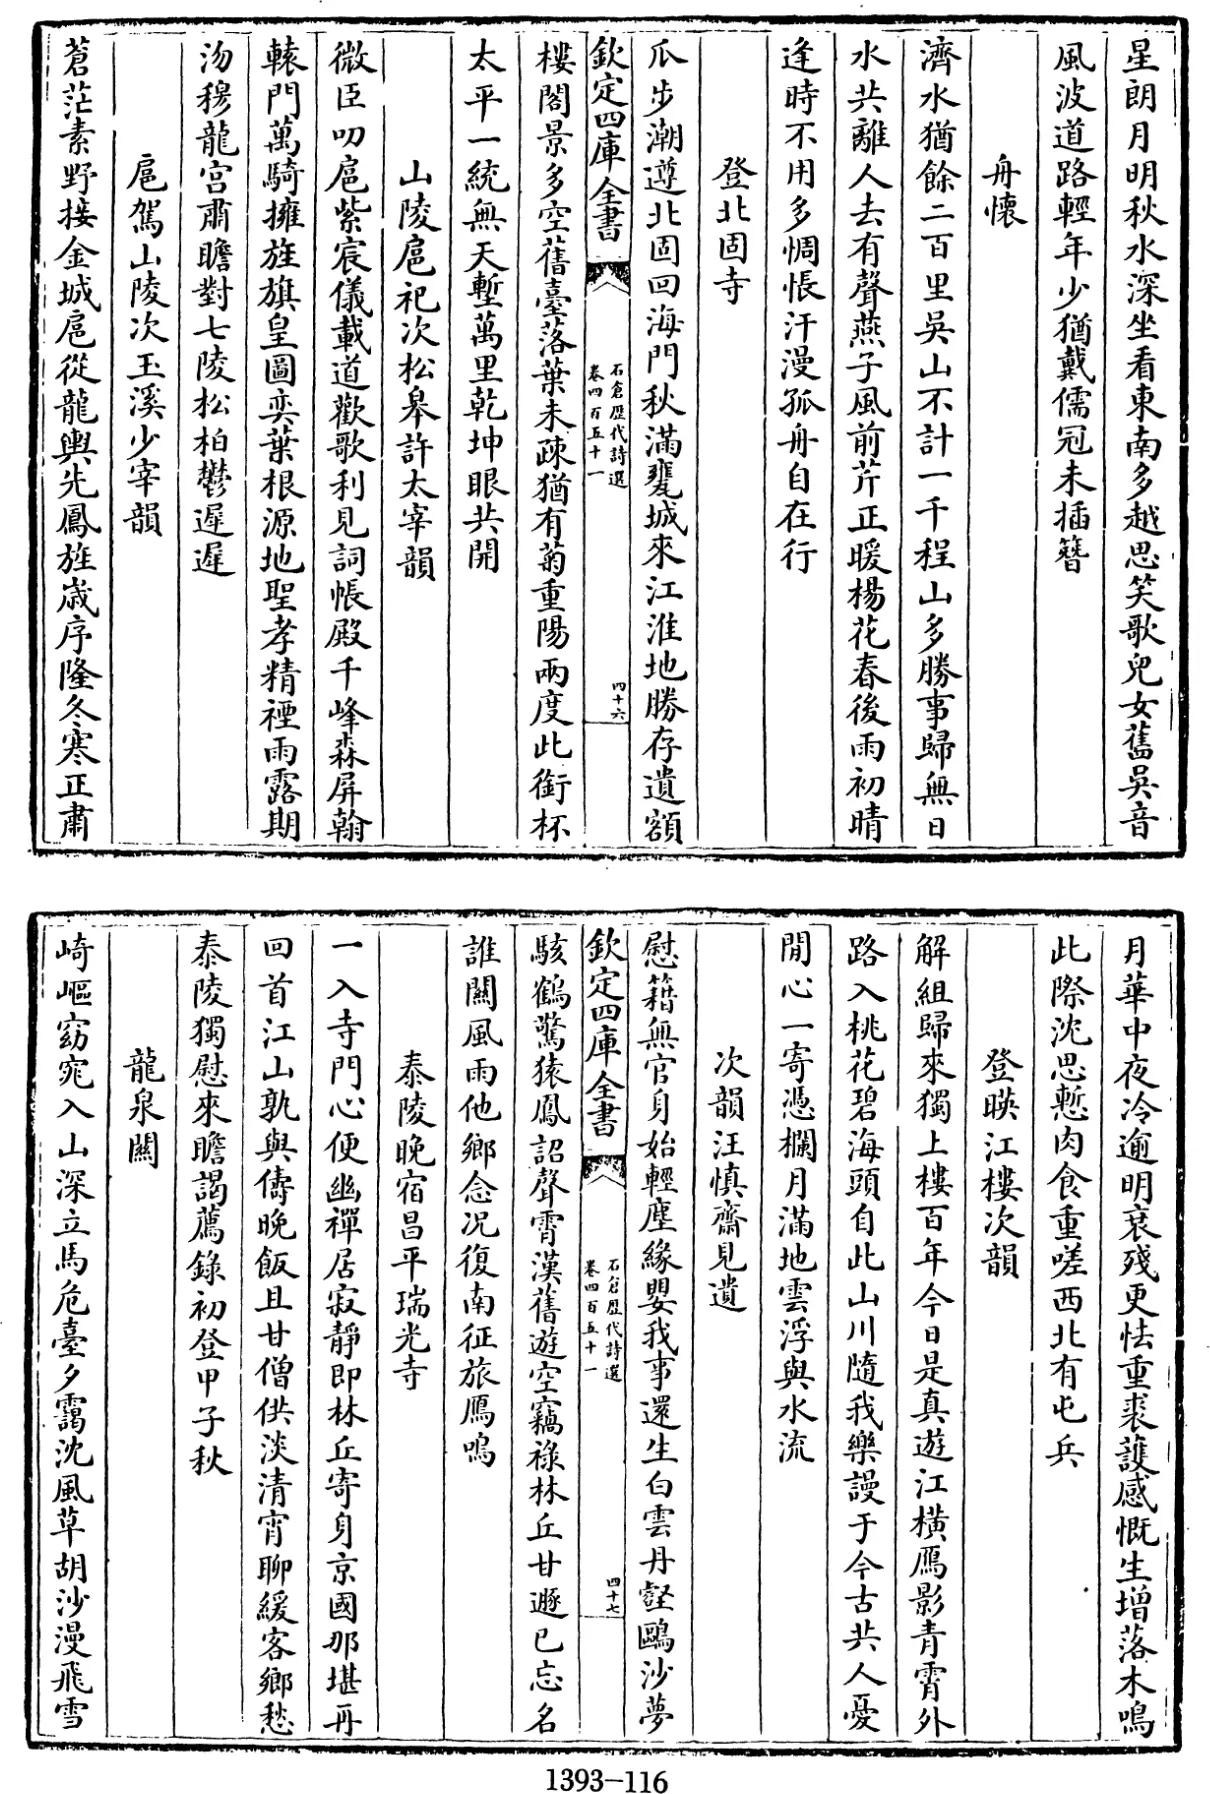 星朗月明秋水深坐看東南多越思笑歌兒女舊吳音
風波道路輕年少猶戴儒冠未插簪
舟懷
濟水猶餘二百里吳山不計一千程山多勝事歸無日
水共離人去有聲燕子風前芹正暖楊花春後雨初晴
逢時不用多惆悵汗漫孤舟自在行
登北固寺
瓜步潮遵北固回海門秋滿甕城來江淮地勝存遺額
欽定四庫全書
石倉歷代詩選
卷四百五十一
四十六
樓閣景多空舊臺落葉未疎猶有菊重陽兩度此銜杯
太平一統無天塹萬里乾坤眼共開
山陵扈祀次松皋許太宰韻
微臣叨扈紫宸儀載道歡歌利見詞帳殿千峰森屏翰
轅門萬騎擁旌旗皇圖奕葉根源地聖孝精禋雨露期
沕穆龍宮肅瞻對七陵松柏鬱遲遲
扈駕山陵次玉溪少宰韻
蒼茫素野接金城扈從龍輿先鳳旌歲序隆冬寒正肅
月華中夜冷逾明衰殘更怯重裘護感慨生增落木鳴
此際沈思慙肉食重嗟西北有屯兵
登暎江樓次韻
解組歸來獨上樓百年今日是真遊江橫鴈影青霄外
路入桃花碧海頭自此山川隨我樂謾于今古共人憂
閒心一寄憑欄月滿地雲浮與水流
次韻汪慎齋見遺
慰藉無官身始輕塵緣嬰我事還生白雲丹壑鷗沙夢
欽定四庫全書
石倉歷代詩選
卷四百五十一
四十七
駭鶴驚猿鳳詔聲霄漢舊遊空竊祿林丘甘遯已忘名
誰關風雨他鄉念况復南征旅鴈鳴
泰陵晚宿昌平瑞光寺
一入寺門心便幽禪居寂靜即林丘寄身京國那堪再
回首江山孰與儔晚飯且甘僧供淡清宵聊緩客鄉愁
泰陵獨慰來瞻謁薦錄初登甲子秋
龍泉關
崎嶇窈宛入山深立馬危臺夕靄沈風草胡沙漫飛雪
1393-116